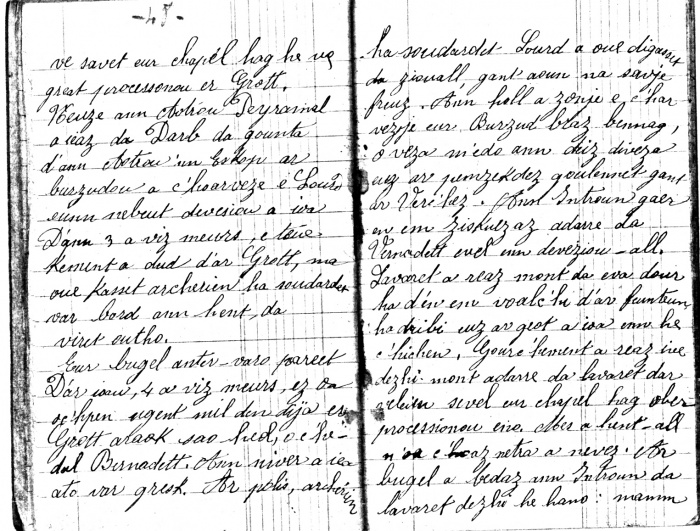 - 45 -
ve savet eur chapel hag he ve
great processonou er Grott.
Neuze ann Aotrou Peyramal
a ieaz da Darb da gounta
d'ann Aotrou 'nn Eskop ar
burzudou a c'hoarveze e Lourd
eunn nebeut deveziou a ioa
D'ann 3 a viz meurs, e teue
kement a dud d'ar Grott, ma
oue kasset archerien ha soudardet
var bord ann hent, da
viret outho.
Eur bugel anter-varo pareet
D'ar iaou, 4 a viz meurs, ez oa
ouc'hpen ugent mil den dija er
Grott araok sao heol, o c'he-
dal Bernadett. Ann niver a iea
ato var gresk. Ar polis, archerien
ha soudardet Lourd a oue digasset
da ziouall gant aoun na savje
freuz. Ann holl a zonje e c'har
vezje eur Burzud braz bennag,
o veza m'edo ann deiz diveza
euz ar pemzekdez goulennet gant
ar Verc'hez. Ann Introun gaer
en em ziskuezaz adarre da
Vernadett evel enn deveziou-all.
Lavaret a reaz mont da eva dour
ha d'en em voalc'hi d'ar feunteun
ha dribi euz ar geot a ioa enn he
c'hichen. Gourc'hement a reaz ive
dezhi mont adarre da lavaret d'ar
veleien sevel eur chapel hag ober
processionou eno. Mes a hent-all
n'oa c'hoaz netra a nevez. Ar
bugel a bedaz ann Introun da
lavaret dezhi he hano: mamm